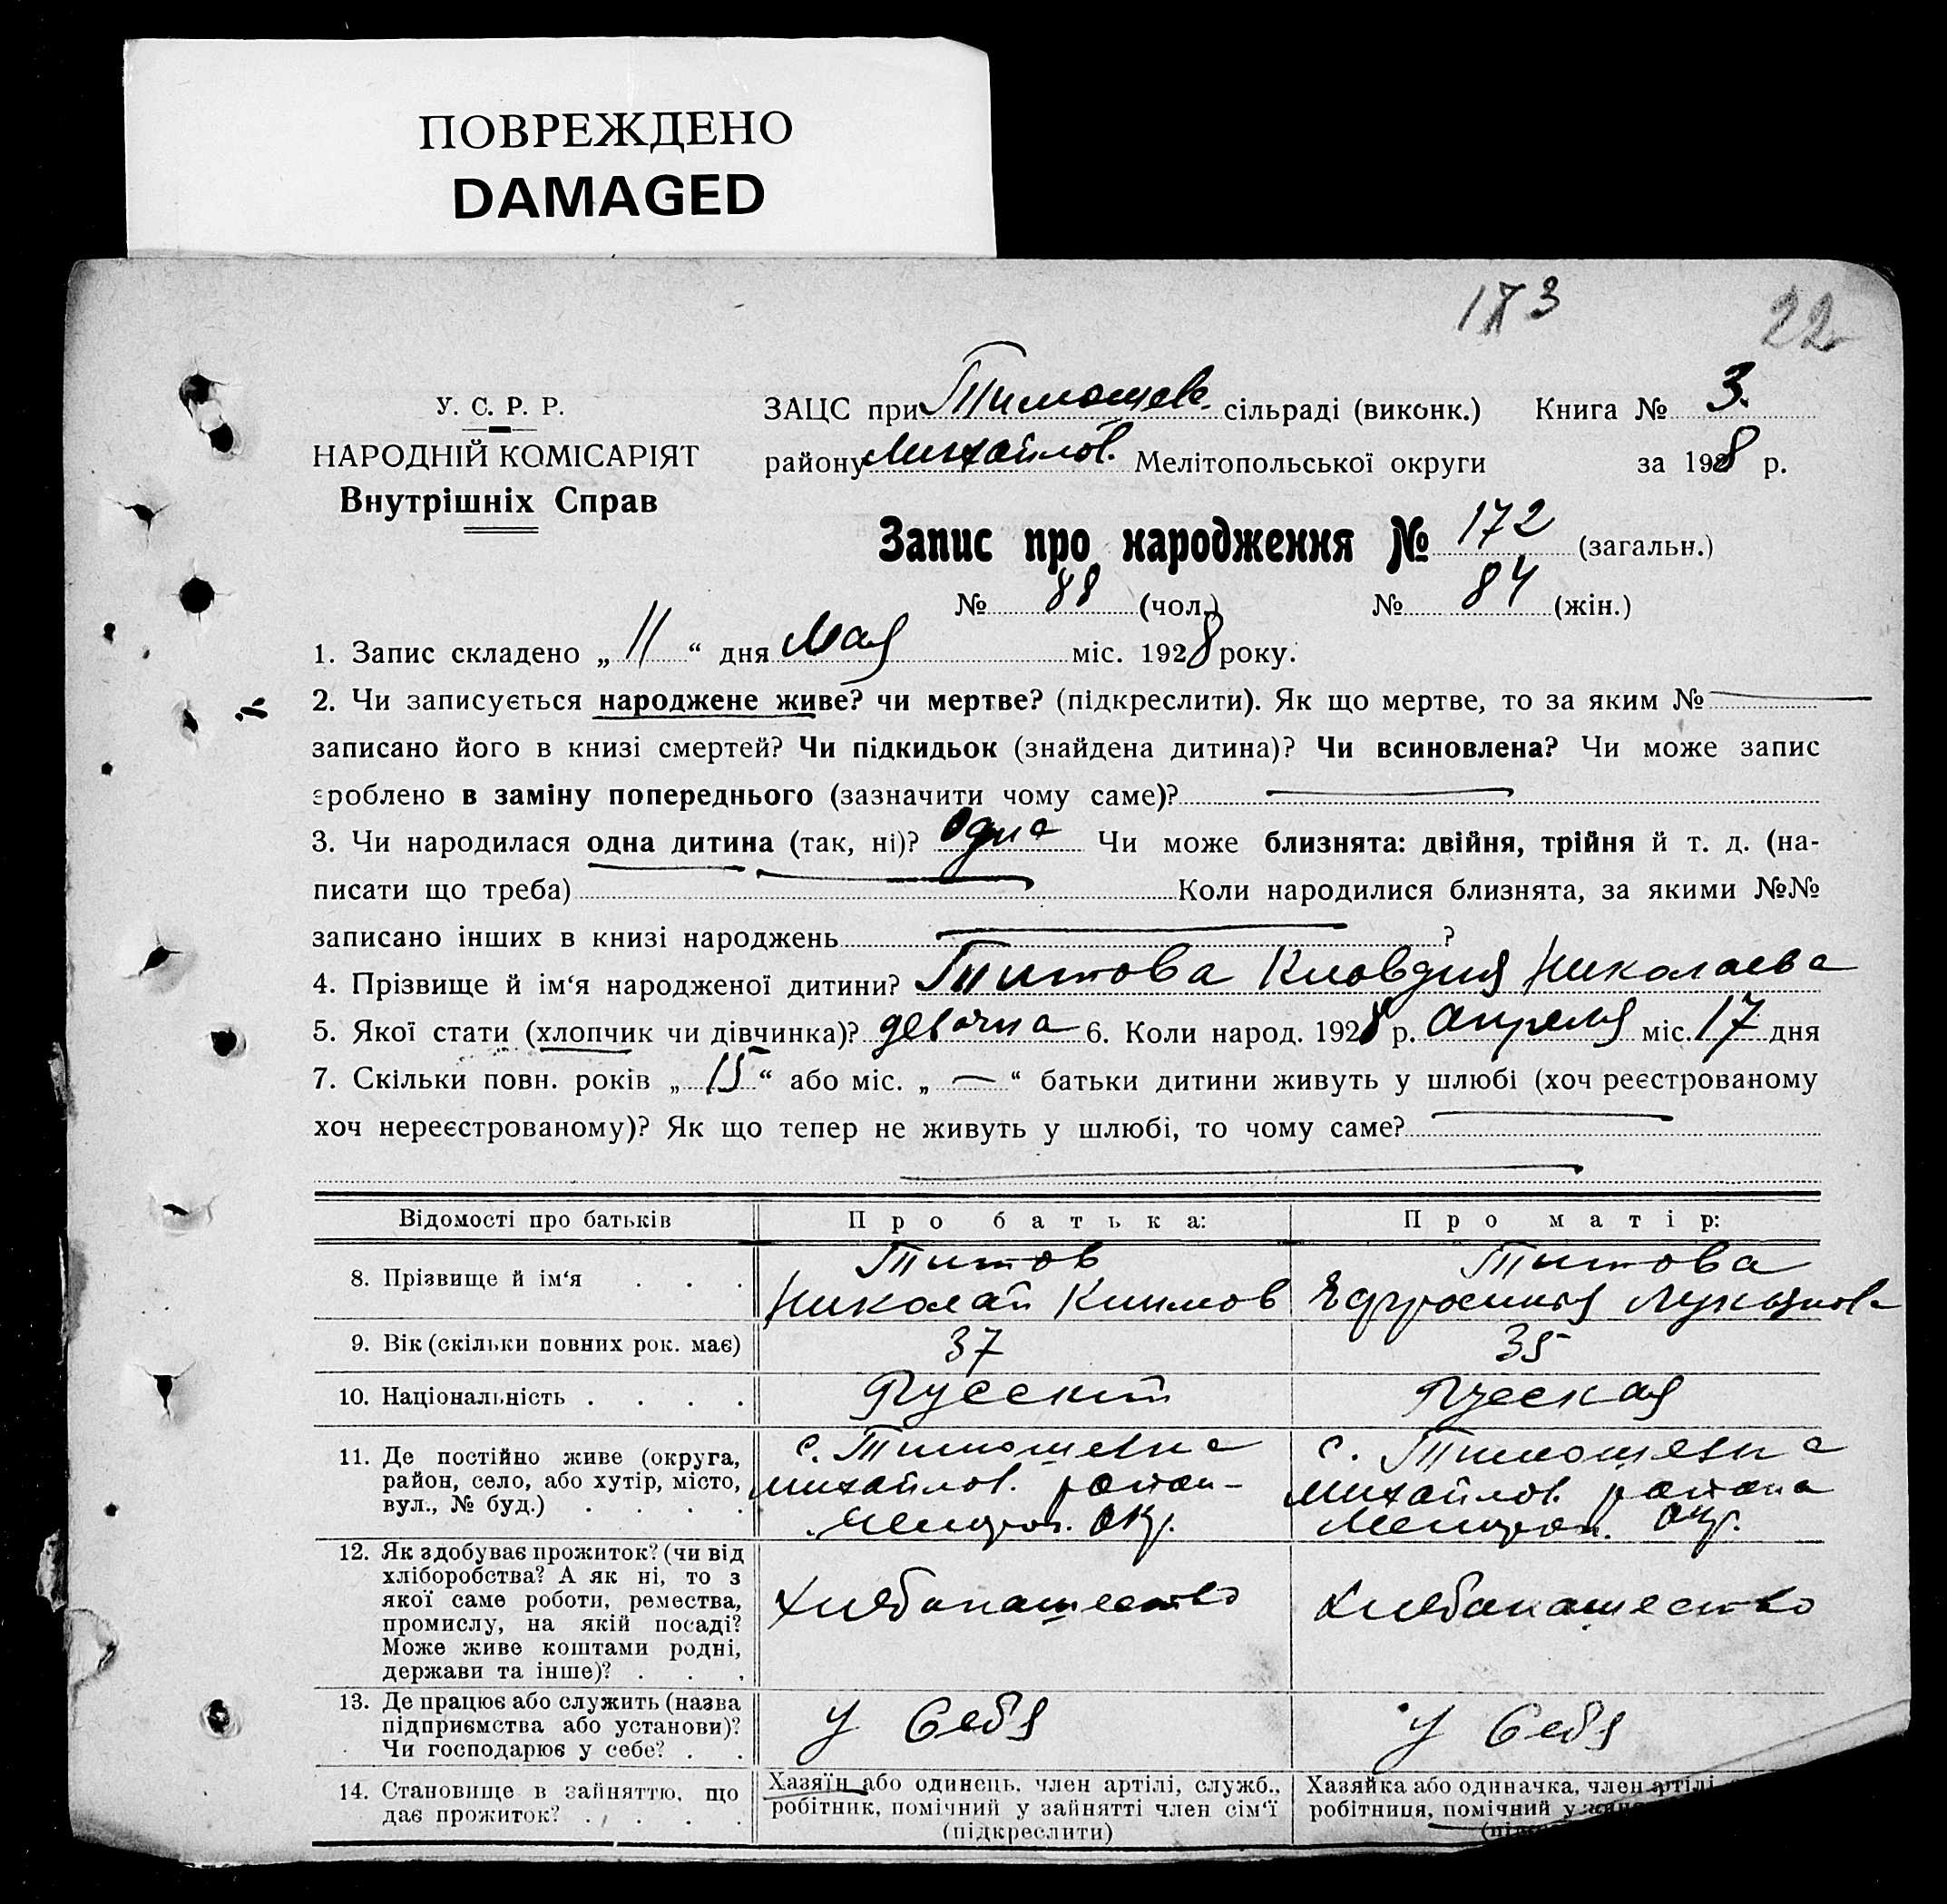 ПОВРЕЖДЕНО
DAMAGED
173
22
У. С. Р. Р.
НАРОДНІЙ КОМІСАРІЯТ
Внутрішніх Справ
ЗАЦС при Тимошев. сільраді (виконк.) Книга № 3.
району Михайлов. Мелітопольської округи за 1928 р.
Запис про народження № 172 (загальн.)
№ 88 (чол.) № 84 (жін.)
1. Запис складено „ 11 “ дня Мая міс. 1928 року.
2. Чи записується народжене живе? чи мертве? (підкреслити). Як що мертве, то за яким №
записано його в книзі смертей? Чи підкидьок (знайдена дитина)? Чи всиновлена? Чи може запис
зроблено в заміну попереднього (зазначити чому саме)?
3. Чи народилася одна дитина (так, ні)? Одна Чи може близнята: двійня, трійня й т. д. (на-
писати що треба) Коли народилися близнята, за якими №№
записано інших в книзі народжень ?
4. Прізвище й ім‘я народженої дитини? Титова Кловдия Николаева
5. Якої стати (хлопчик чи дівчинка)? девочка 6. Коли народ. 1928 р. Апреля міс. 17 дня
7. Скільки повн. років „ 15 “ або міс. „ — “ батьки дитини живуть у шлюбі (хоч реєстрованому
хоч нереєстрованому)? Як що тепер не живуть у шлюбі, то чому саме?
Відомості про батьків Про батька: Про матір:
8. Прізвище й ім‘я . . .
Титов
Николай Климов
Титова
Ефросиния Лукьянова
9. Вік (скільки повних рок. має) 37 35
10. Національність . . . . Русский Русская
11. Де постійно живе (округа,
район, село, або хутір, місто,
вул., № буд.) . . . .
с. Тимошевка
михайлов. район-
Мелитоп. окр.
с. Тимошевка
михайлов. района
Мелитоп. окр.
12. Як здобуває прожиток? (чи від
хліборобства? А як ні, то з
якої саме роботи, ремества,
промислу, на якій посаді?
Може живе коштами родні,
держави та інше)? . . .
Хлебопашество
Хлебопашество
13. Де працює або служить (назва
підприємства або установи)?
Чи господарює у себе? . .
У Себя
У Себя
14. Становище в зайняттю, що
дає прожиток? . . . .
Хазяїн або одинець, член артілі, служб.,
робітник, помічний у зайнятті член сім‘ї
(підкреслити)
Хазяйка або одиначка, член артілі
робітниця, помічний у